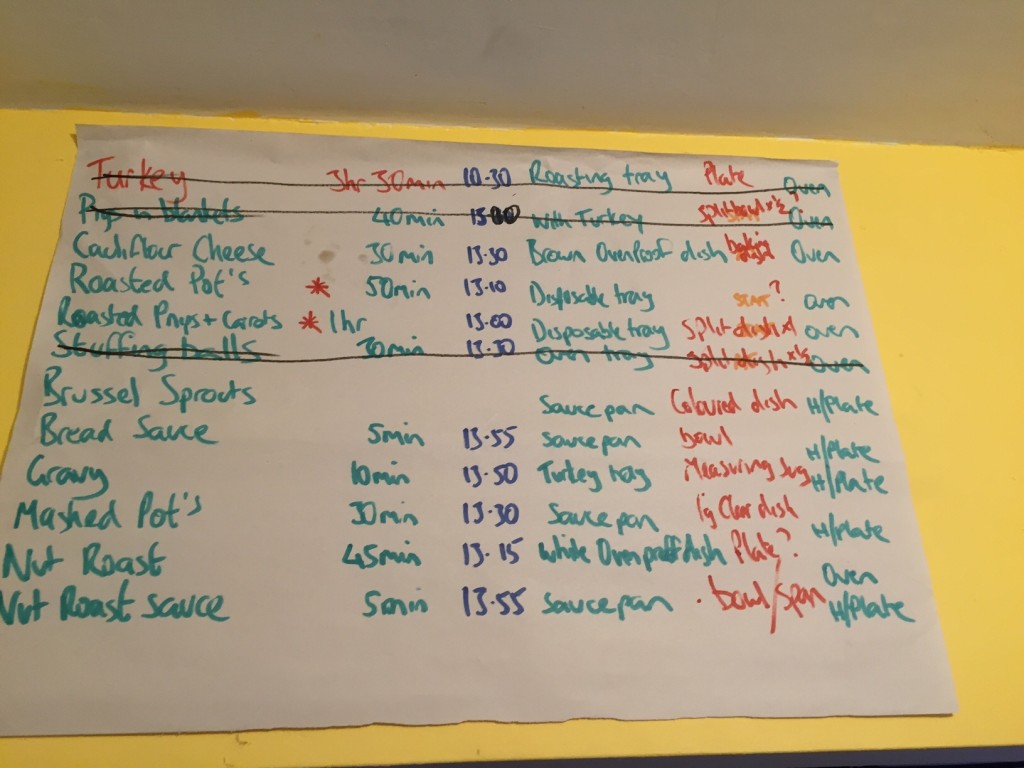 Turkey 3hr 30min 10.30 Roasting tray Plate Oven
Pigs in blankets 40min with Turkey Oven
Cauliflour Cheese 30min 13.30 Brown Ovenproof dish Oven
Roasted Pot's * 50min 13.10 Disposable tray ? oven
Roasted Pnips + Carrots * 1hr 13.00 Disposable tray split dish x1 oven
Stuffing balls 30min 13.30 Oven tray split dish x½ Oven
Brussel Sprouts Saucepan Coloured dish H/Plate
Bread Sauce 5min 13.55 saucepan bowl H/Plate
Gravy 10min 13.50 Turkey tray Measuring Jug H/Plate
Mashed Pot's 30min 13.30 Saucepan lg Clear dish H/Plate
Nut Roast 45min 13.15 White Ovenproff dish Plate? Oven
Nut Roast sauce 5min 13.55 saucepan . bowl/span H/Plate